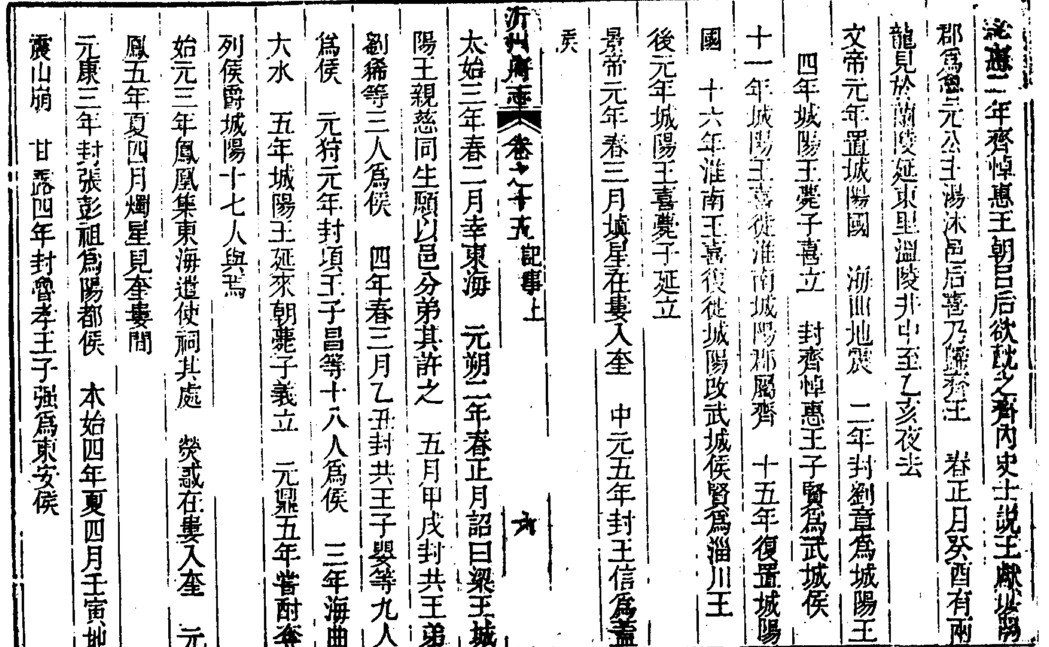 孝惠二年齊悼惠王朝呂后欲酖之齊內史士說王獻城陽
郡爲魯元公主湯沐邑后喜乃歸齊王　春正月癸酉有兩
龍見於蘭陵延東里溫陵井中至乙亥夜去
文帝元年置城陽國　海曲地震　二年封劉章爲城陽王
四年城陽王薨子喜立　封齊悼惠王子賢爲武城侯
十一年城陽王喜徙淮南城陽郡屬齊　十五年復置城陽
國　十六年淮南王喜復徙城陽改武城侯賢爲淄川王
後元年城陽王喜薨子延立
景帝元年春三月塡星在婁入奎　中元五年封王信爲蓋
侯
沂州府志　卷之十五　記事上　六
太始三年春二月幸東海　元朔二年春正月詔曰梁王城
陽王親慈同生願以邑分弟其許之　五月甲戌封共王弟
劉稀等三人爲侯　四年春三月乙丑封共王子嬰等九人
爲侯　元狩元年封項王子昌等十八人爲侯　三年海曲
大水　五年城陽王延來朝薨子義立　元鼎五年嘗酎奪
列侯爵城陽十七人與焉
始元三年鳳凰集東海遣使祠其處　熒惑在婁入奎　元
鳳五年夏四月燭星見奎婁間
元康三年封張彭祖爲陽都侯　本始四年夏四月壬寅地
震山崩　甘露四年封魯孝王子强爲東安侯